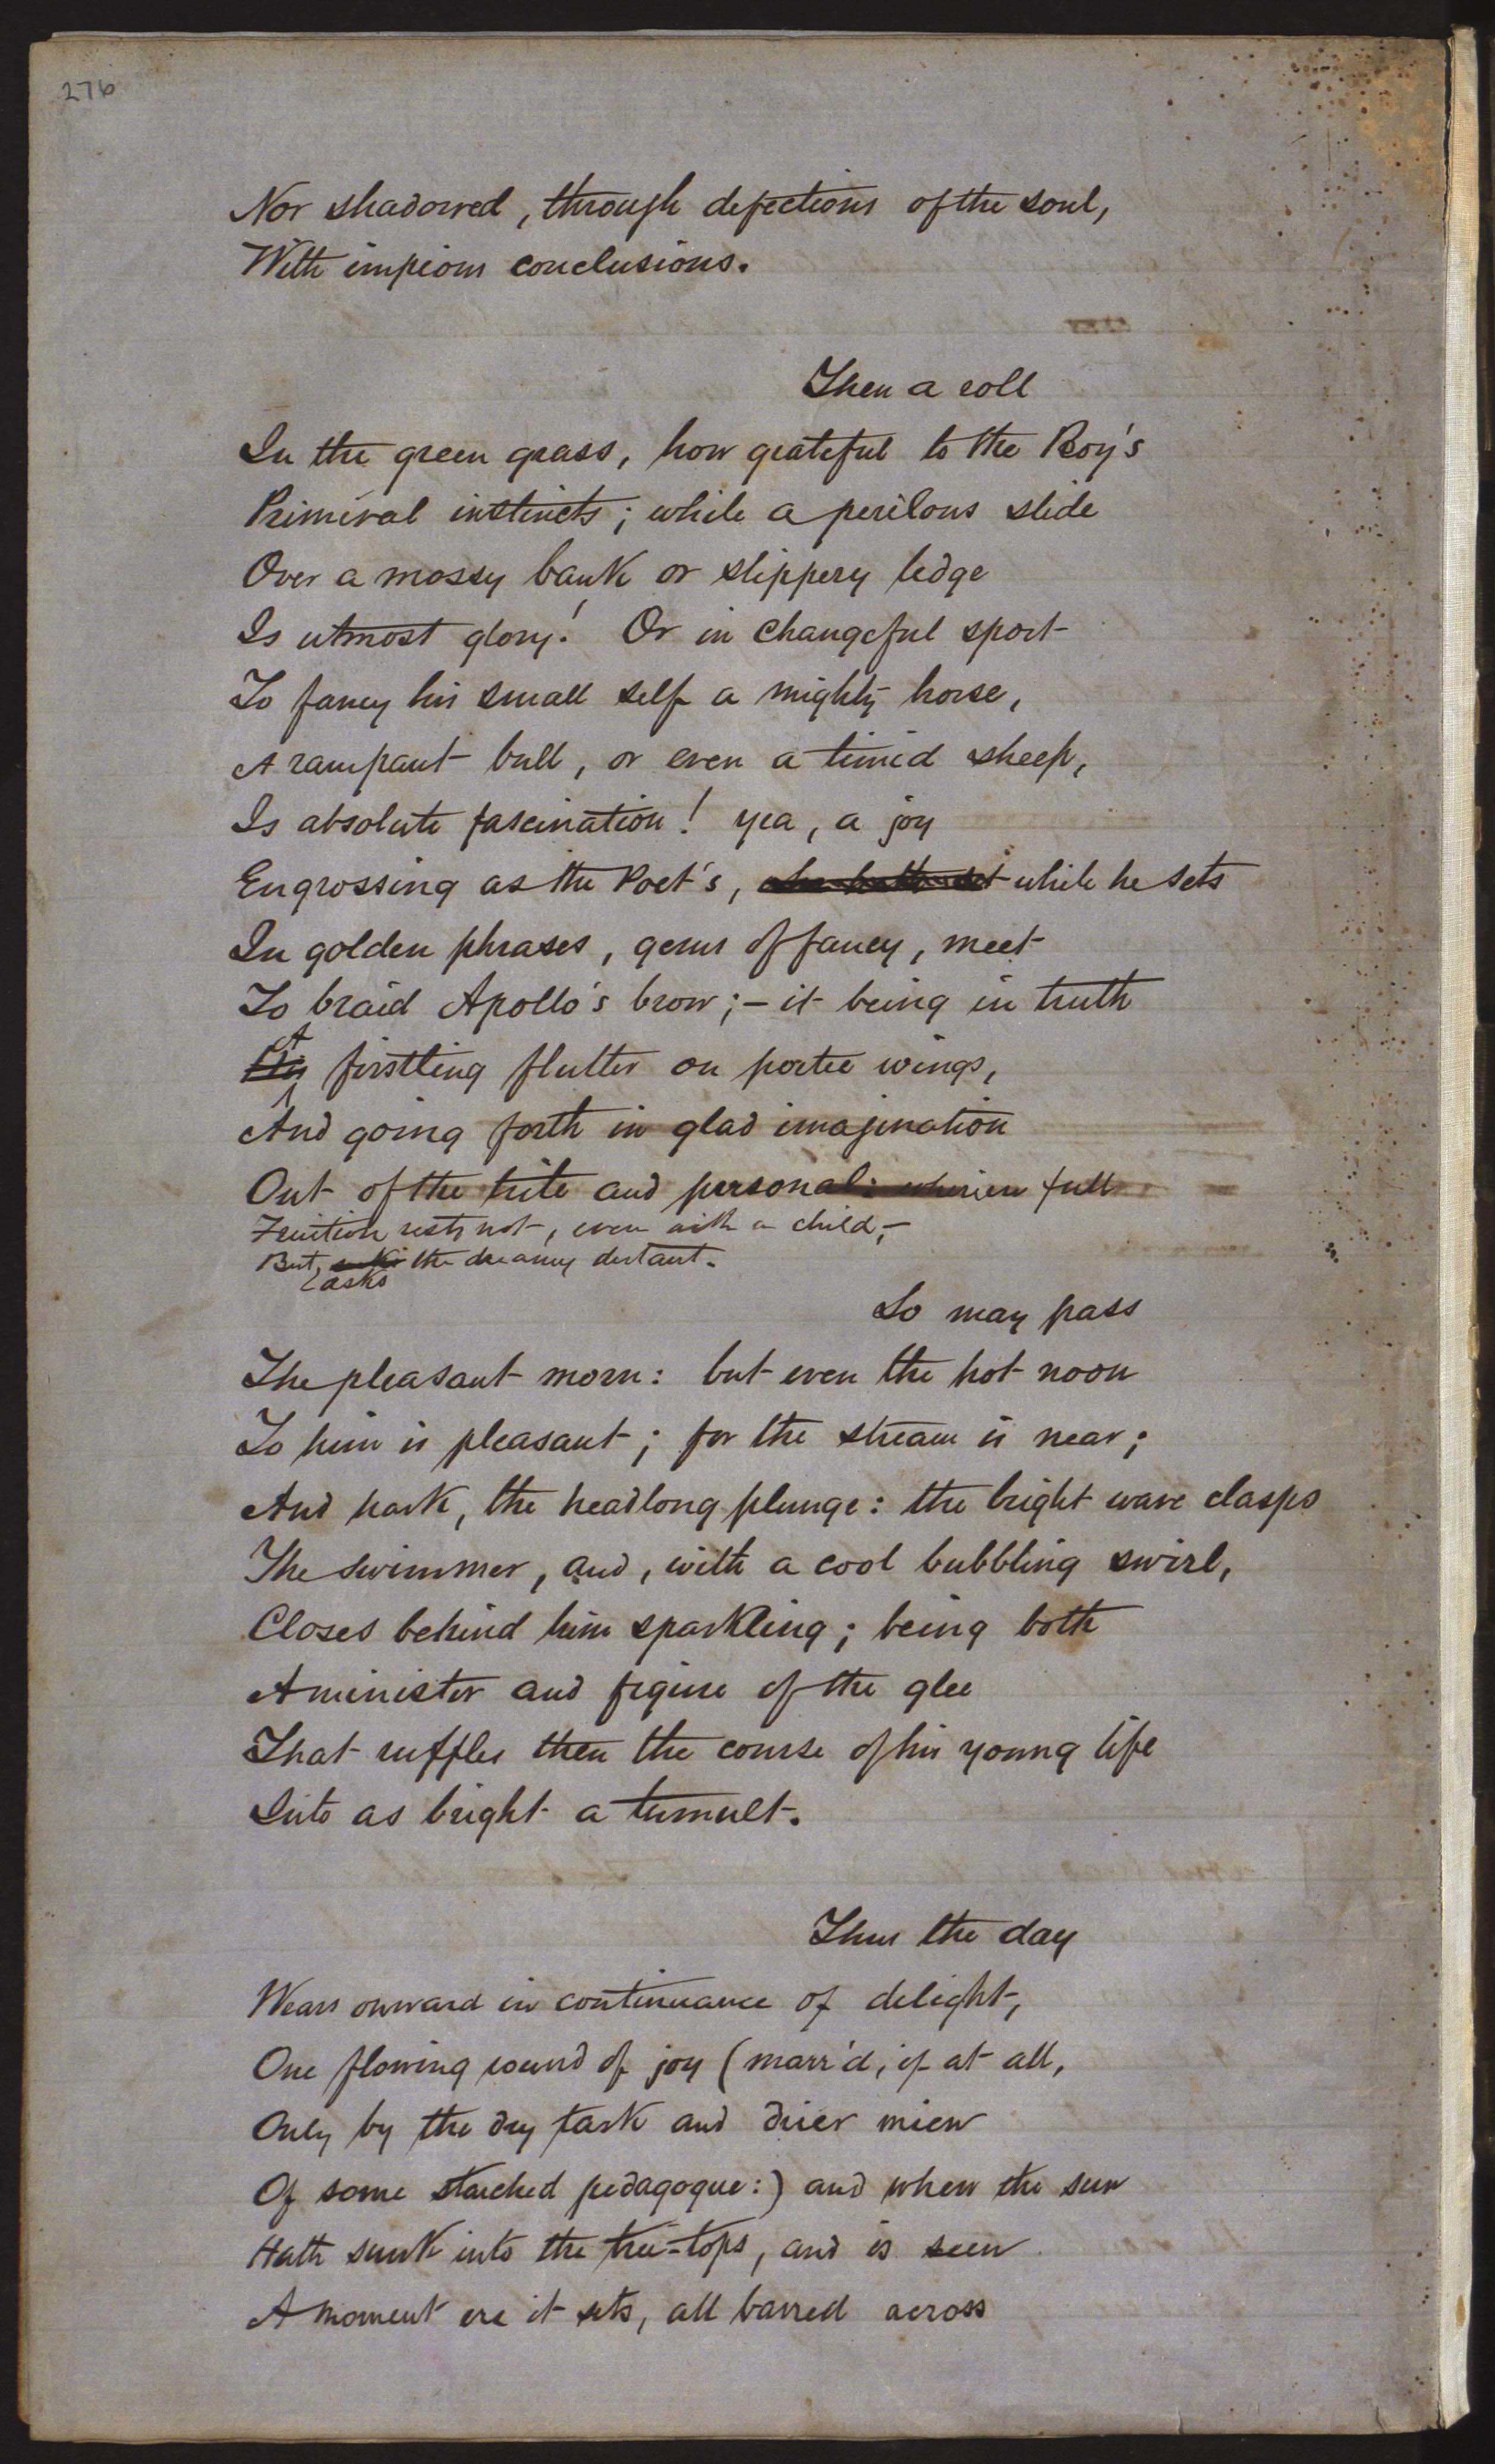 276
Nor shadowed, through defections of the soul,
With impious conclusions.
Then a roll
In the green grass, how grateful to the Boy's
Primeval instincts; while a perilous slide
Over a mossy bank or slippery ledge
Is utmost glory! Or in changeful sport
To fancy his small self a mighty horse,
A rampant bull, or even a timid sheep,
Is absolute fascination! yea, a joy
Engrossing as the Poet's, while he sets
In golden phrases, gems of fancy, meet
To braid Apollo's brow;— it being in truth
A
firstling flutter on poetic wings,
And going forth in glad imagination
Out of the trite and personal: wherein full
Fruition rests not, even with a child,—
But, the dreamy distant.
asks
So may pass
The pleasant morn: but even the hot noon
To him is pleasant; for the stream is near;
And hark, the headlong plunge: the bright wave clasps
The swimmer, and, with a cool bubbling swirl,
Closes behind him sparkling; being both
A minister and figure of the glee
That ruffles then the course of his young life
Into as bright a tumult.
Thus the day
Wears onward in continuance of delight,
One flowing round of joy (marr'd, if at all,
Only by the dry task and drier mien
Of some starched pedagogue:) and when the sun
Hath sunk into the tree-tops, and is seen
A moment ere it sets, all barred across